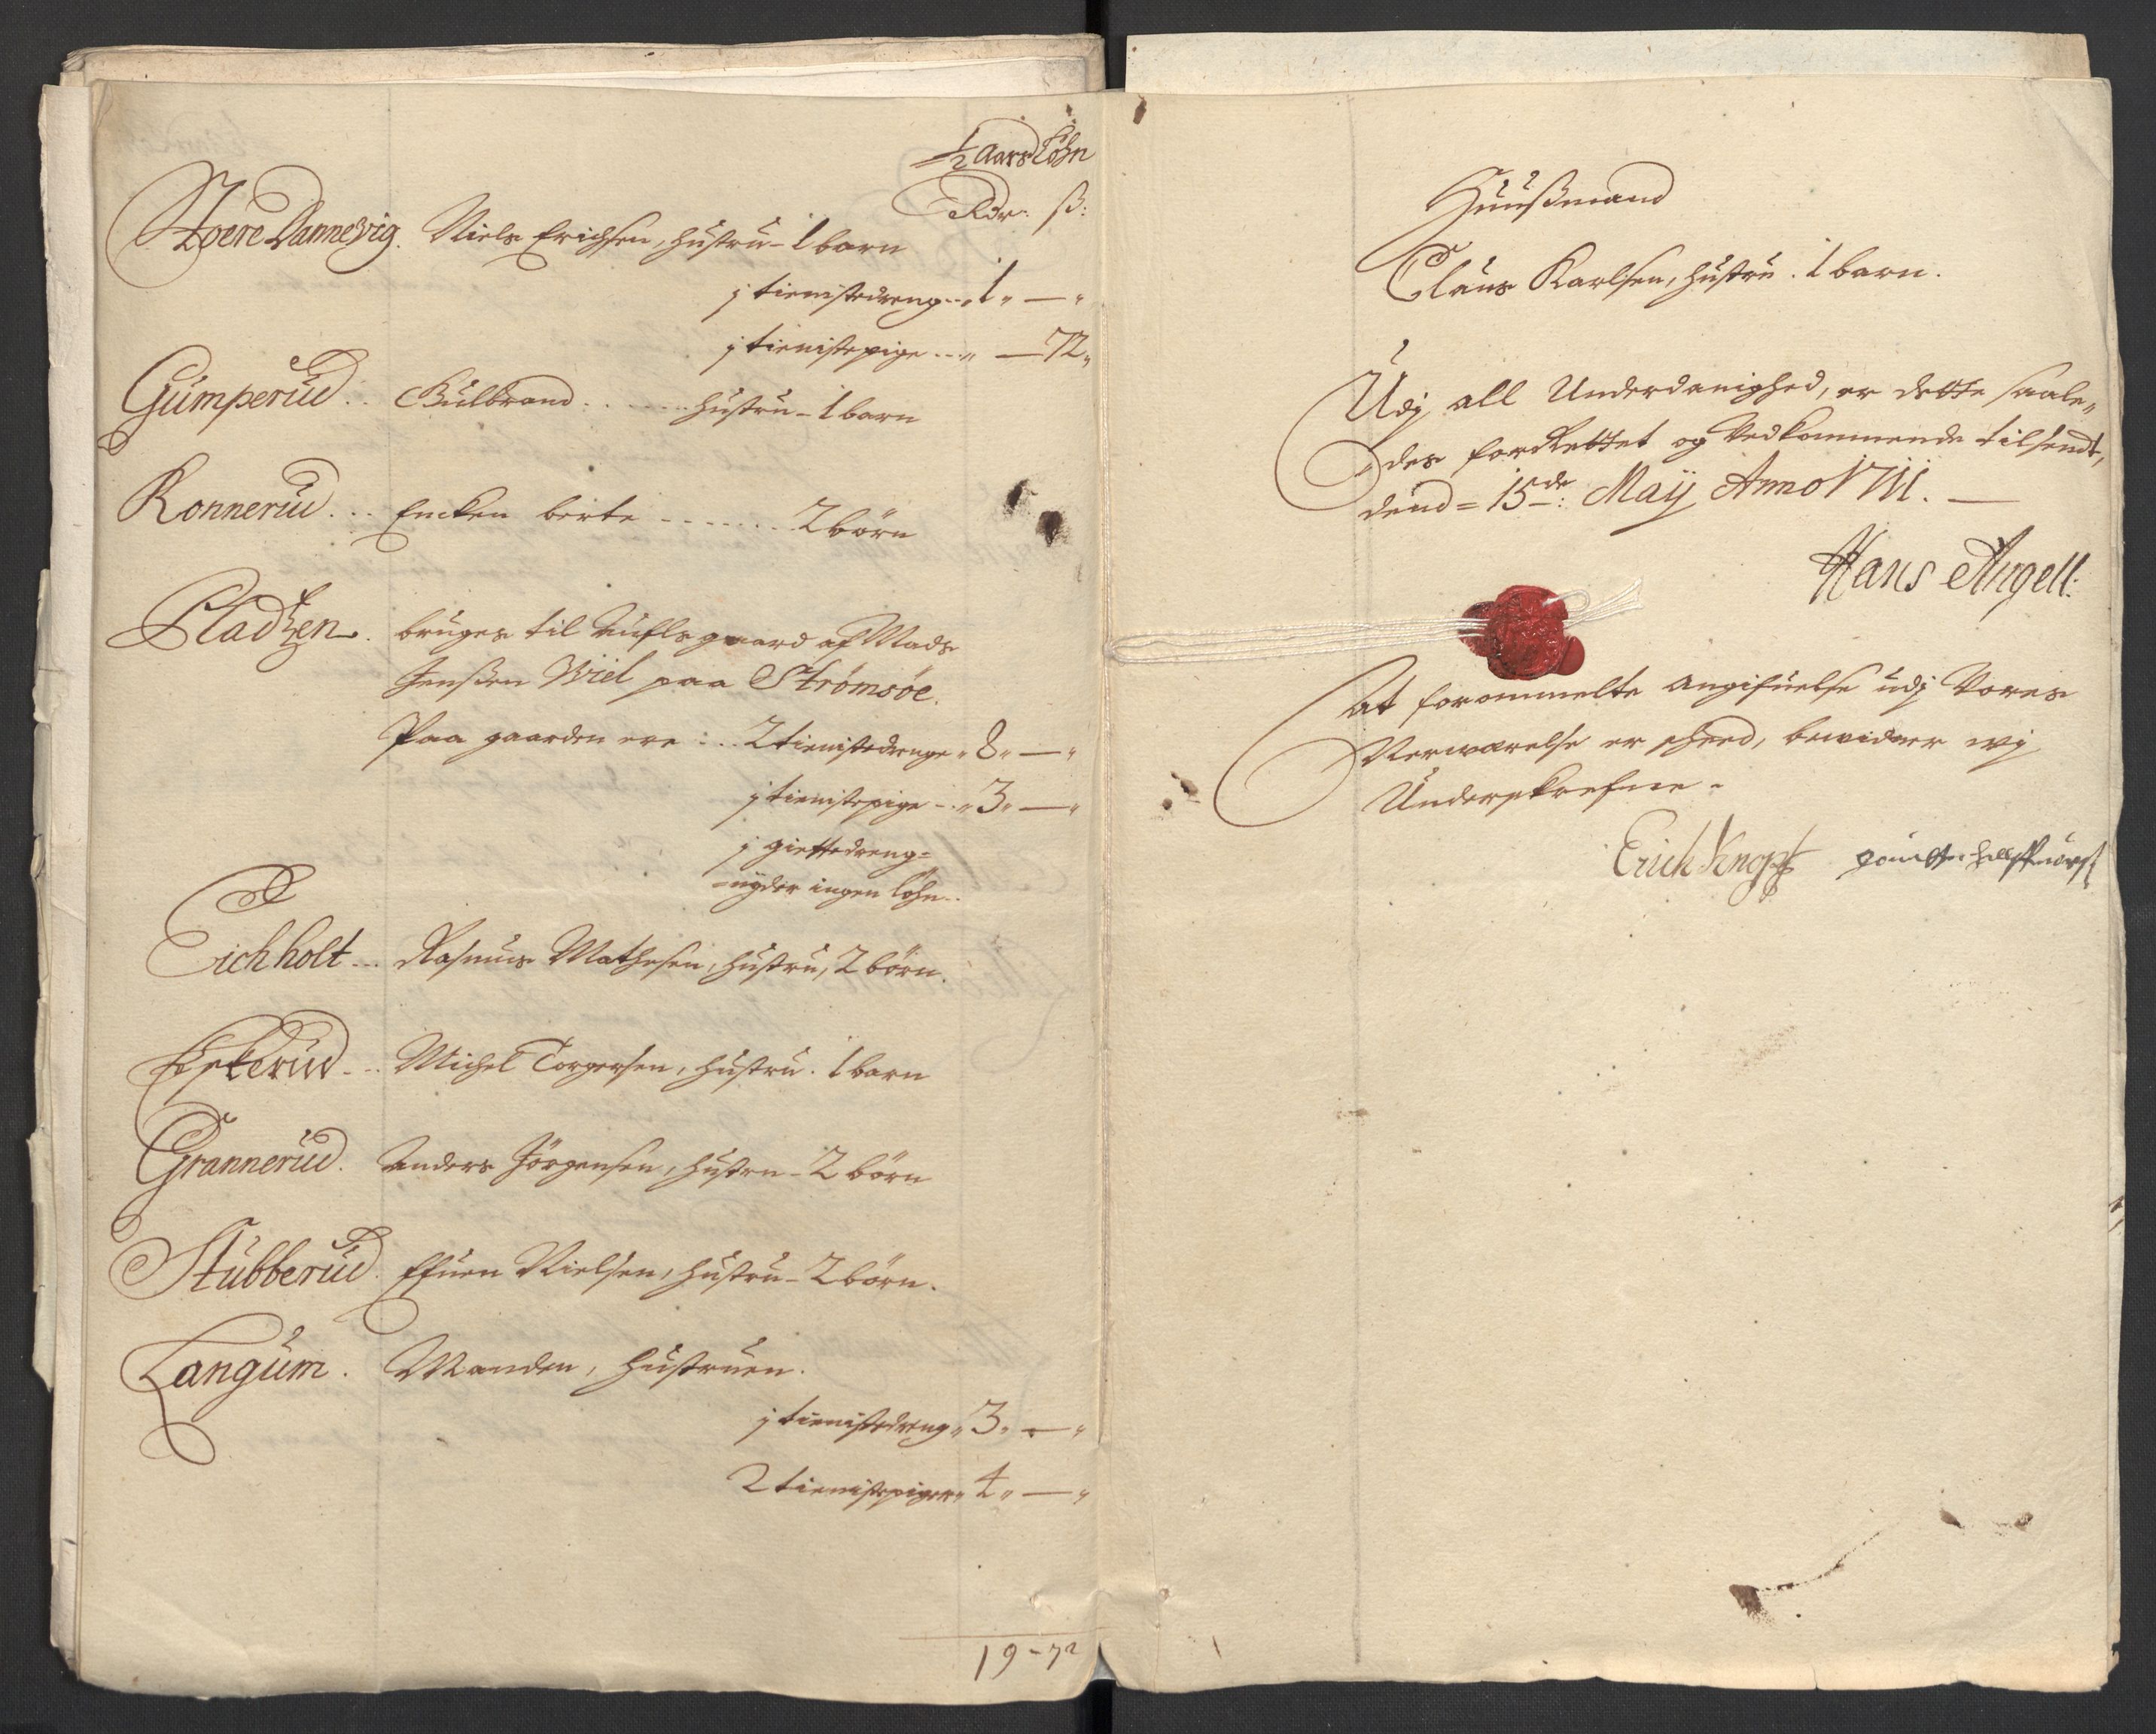 ½ Aars Löhn
Rdr: ß:
Store Dannevig. Niels Erichsen, hustru - 1 barn
j tienistedreng .. „ 1 „ — „
j tienistepige ... „ — 72 „
Gumperud .. Gulbrand ...... hustru - 1 barn
Konnerud ... Encken birte ....... 2 börn
Pladtzen . bruges til aufls gaard af Mads
Jenßen Wiel paa Strømsøe.
Paa gaarden ere : .. 2 tienistedrenge „ 8 „ — „
j tienistepige - . „ 3 „ — „
j giettedreng =
= nÿder ingen löhn ..
Eichholt ... Rasmus Mathesen, hustru, 2 börn.
Eskerud ... Michel Torgersen, hustru . 1 barn
Grannerud. Anders Jörgensen, hustru - 2 börn
Stubberud. Efuen Nielsen, hustru - 2 börn.
Langum . Manden, hustruen.
j tienistedreng „ 3 „ — „
2 tienistepiger „ 4 „ — „
19 - 72
Huußmand
Claus Karlsen, hustru . 1 barn.
Udj all Underdanighed, er dette saale„
„des forrettet og Vedkommende tilsendt,
dend = 15de: Maÿ Anno 1711. —
Hans Angell:
At forommelte angifuelse udj Vores
Nerværelse er skeed, bevidner wj
Underskrefne.
Erich